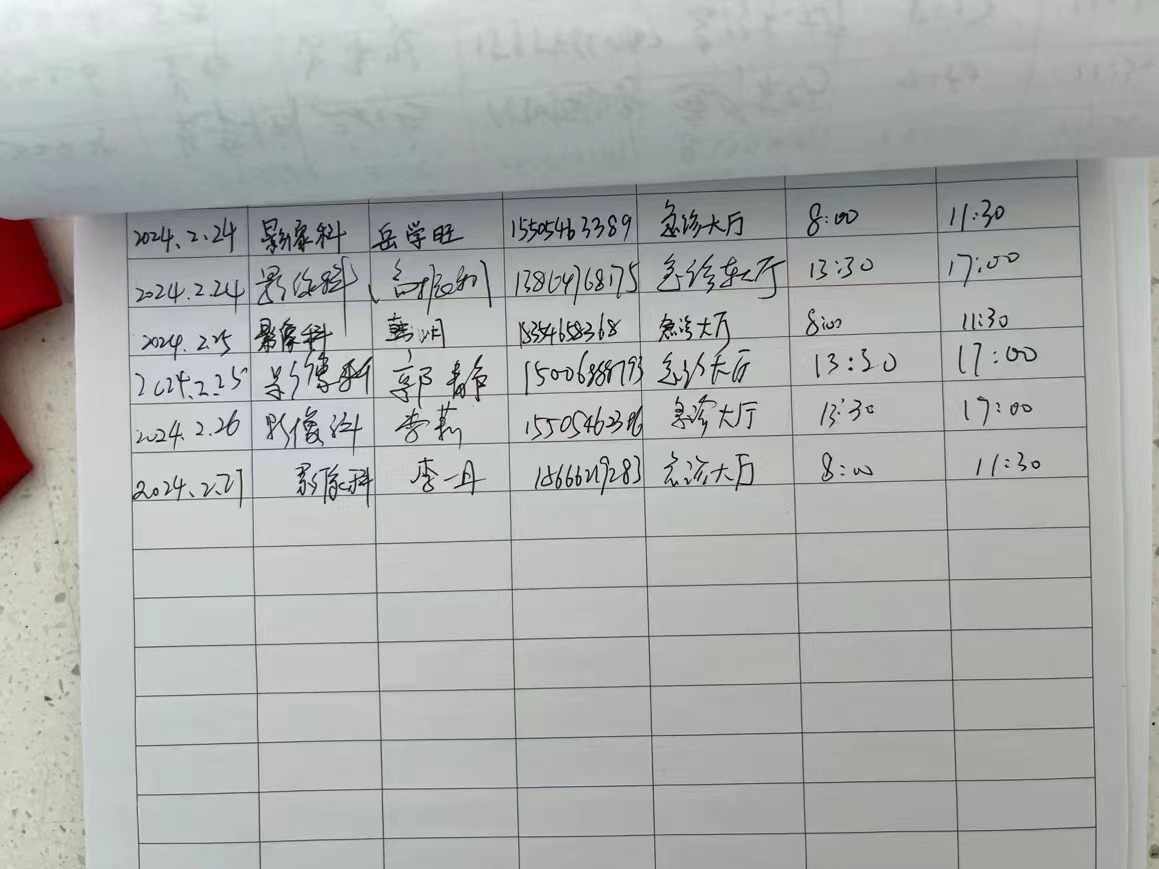 2024.2.24 影像科 岳学旺 15505463389 急诊大厅 8:00 11:30
2024.2.24 影像科 13864768175 急诊大厅 13:30 17:00
2024.2.25 影像科 韩明 18354658368 急诊大厅 8:00 11:30
2024.2.25 影像科 郭春节 急诊大厅 13:30 17:00
2024.2.26 影像科 李莉 15505462386 急诊大厅 13:30 17:00
2024.2.27 影像科 李一丹 15666219283 急诊大厅 8:00 11:30